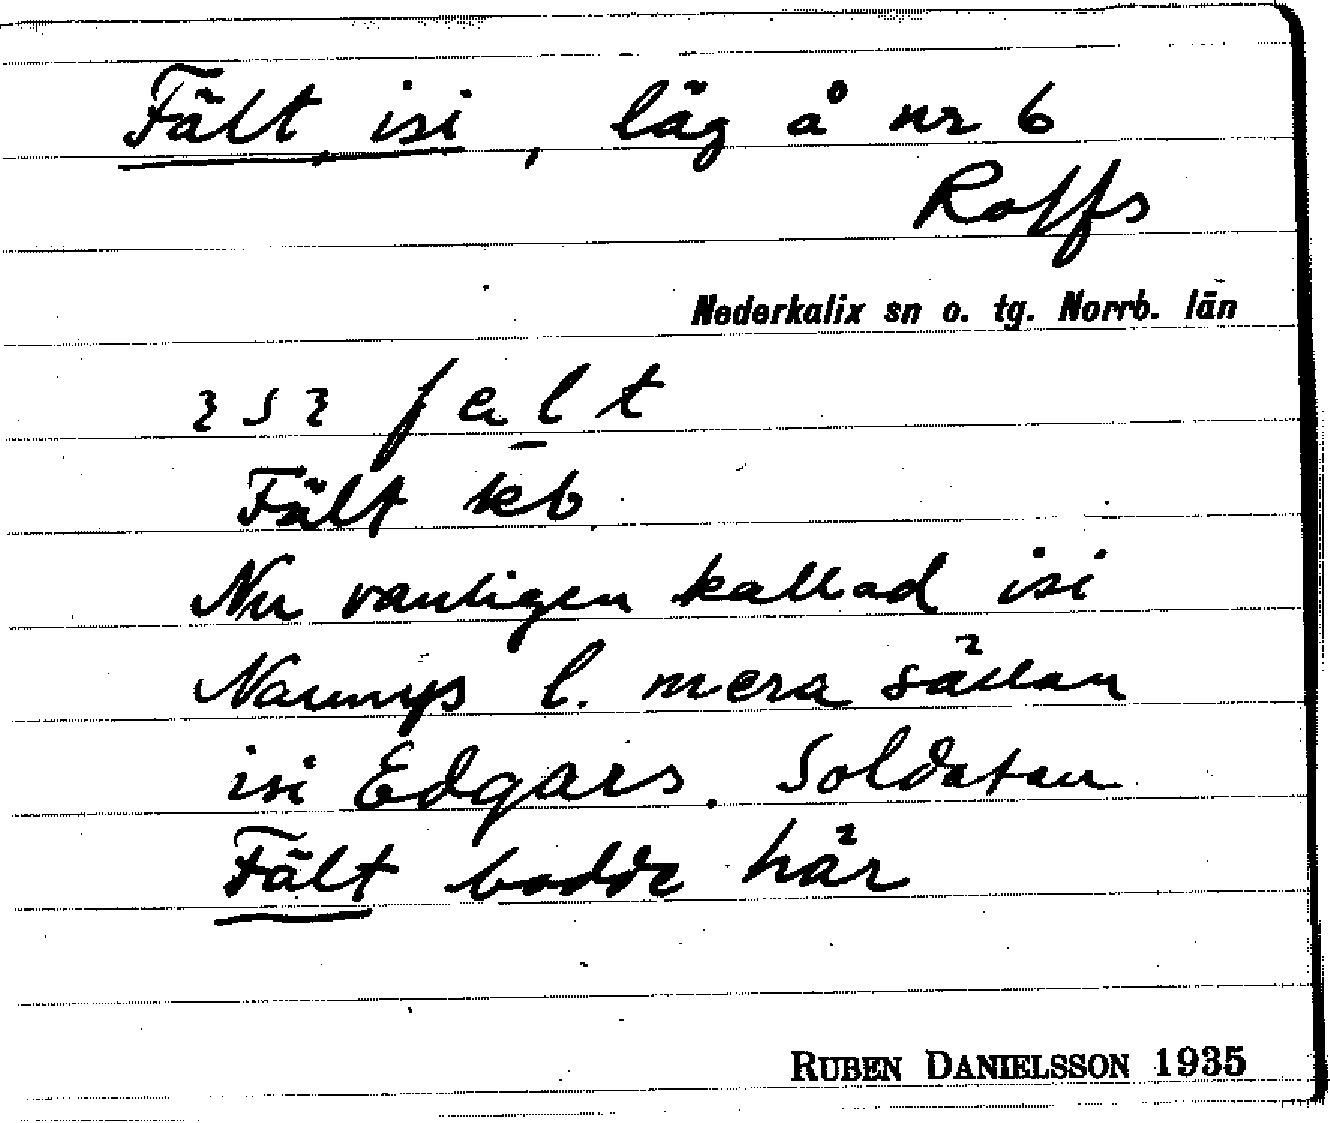 Fält, isi, läg å nr 6
Rolfs
Nederkalix sn o. tg. Norrb. län
falt
Fält kb
Nu vanligen kallad isi
Nannys l. mera sällan
isi Edgars. Soldaten
Fält bodde här
RUBEN DANIELSSON 1935